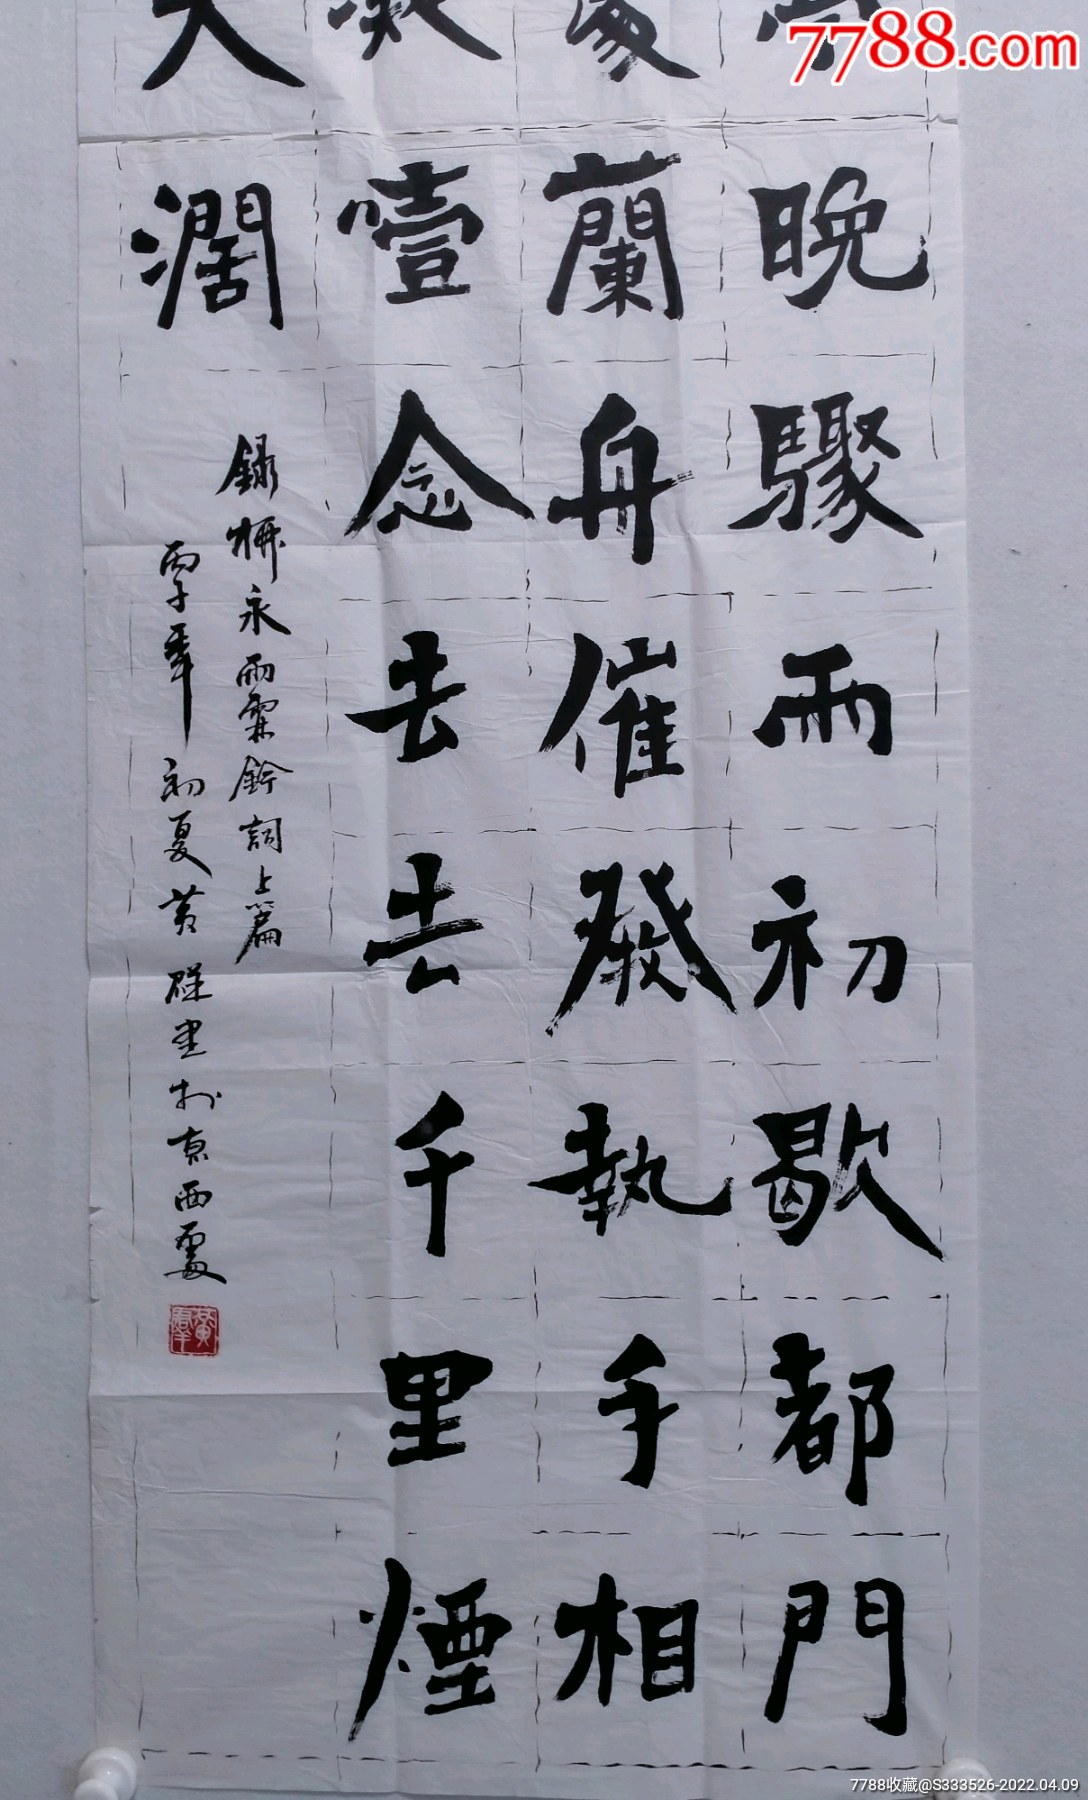 7788.com
晚驟雨初歇都門
蘭舟催發執手相
噎念去去千里煙
天闊
錄柳永雨霖鈴詞上篇
丙子年初夏黃群書於京西
7788收藏@S333526-2022.04.09